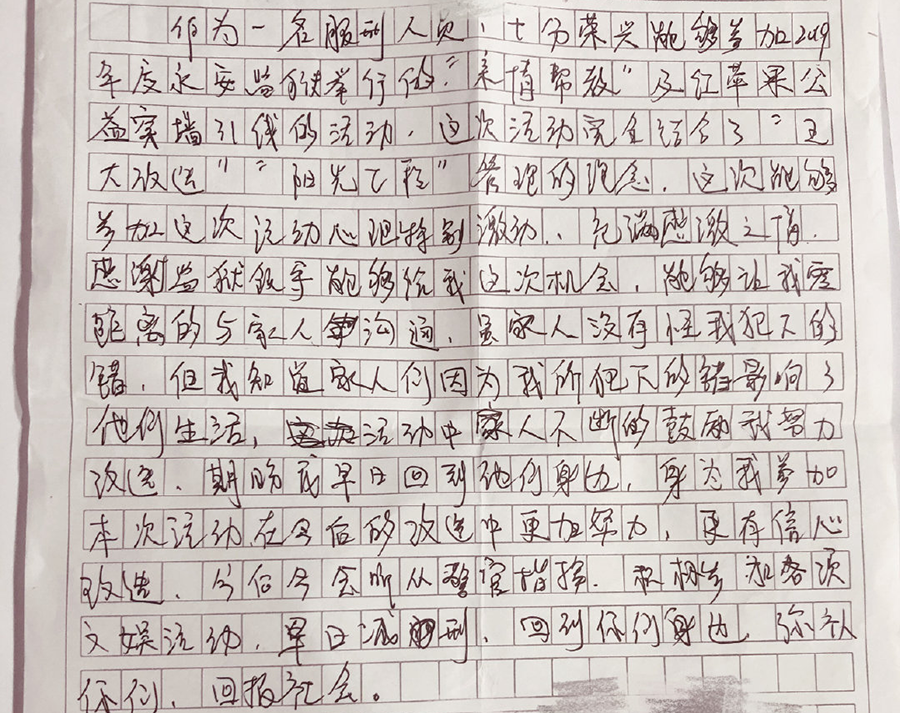 作为一名服刑人员,十分荣兴能够参加2019
年度永安监狱举行的“亲情帮教”及红苹果公
益穿墙引线的活动,这次活动完全结合了“五
大改造”“阳光工程”管理的理念,这次能够
参加这次活动心理特别激动,充满感激之情.
感谢监狱领导能够给我这次机会,能够让我零
距离的与家人沟通,虽家人没有怪我犯下的
错,但我知道家人们因为我所犯下的错影响了
他们生活,活动中家人不断的鼓励我努力
改造、期盼我早日回到他们身边,身为我参加
本次活动在今后的改造中更加努力,更有信心
改造、今后会听从警官指挥.积极参加各项
文娱活动,早日减刑、回到你们身边,弥补
你们、回报社会。